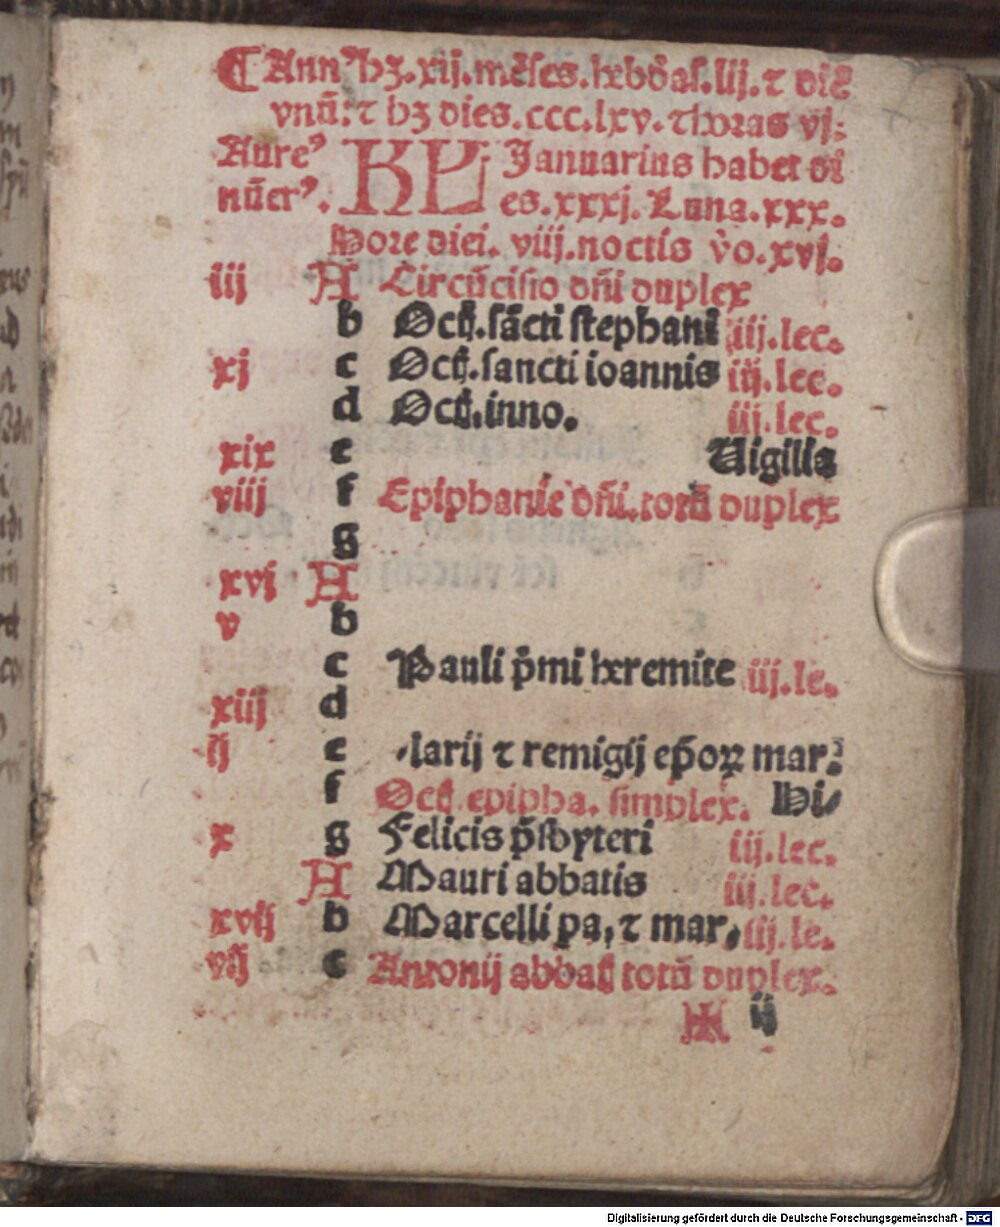 ¶ Annꝰ hꝫ .xij. mēses. hebdōas. lij. ⁊ diē
vnū: ⁊ hꝫ dies. ccc.lxv. ⁊ horas vj:
Aureꝰ KL Januarius habet di
nūerꝰ. es. xxxj. Luna. xxx.
Hore diei. viij. noctis v̊o. xvj.
iij A Circūcisio dñi duplex
b Octꝭ. sācti stephani iij. lec.
xj c Octꝭ. sancti ioannis iij. lec.
d Octꝭ. inno. iij. lec.
xix e Uigilia
viij f Epiphanie dñi. totū duplex
g
xvj A
v b
c Pauli p̄mi heremite iij. le.
xiij d
ij e /larij ⁊ remigij ep̄oꝝ mar.
f Octꝭ. epipha. simplex. Hi/
x g Felicis p̄sbyteri iij. lec.
A Mauri abbatis iij. lec.
xvij b Marcelli pa, ⁊ mar, iij. le.
vij c Antonij abbatꝭ totū duplex.
✠ ij
Digitalisierung gefördert durch die Deutsche Forschungsgemeinschaft - DFG